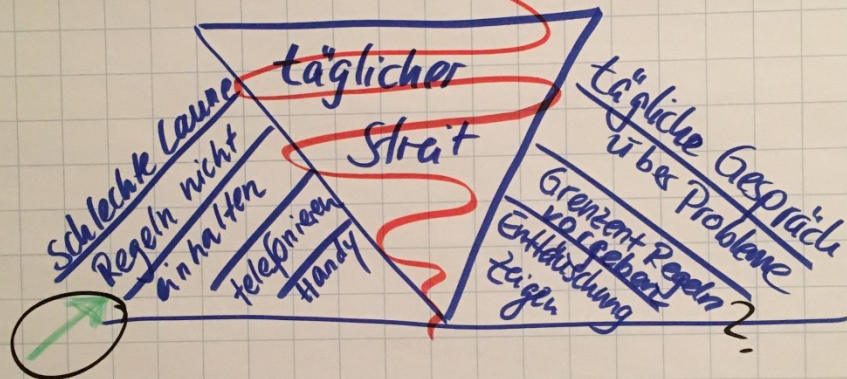 täglicher
Streit
Schlechte Laune
Regeln nicht
einhalten
telefonieren
Handy
tägliche Gespräch
über Probleme
Grenzen+Regeln
vorgeben
Enttäuschung
zeigen
?